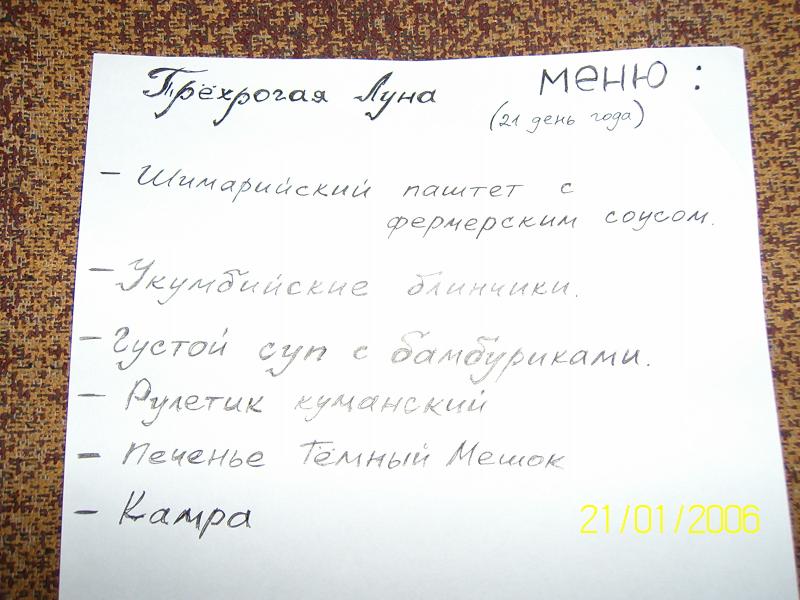 Трёхрогая Луна
меню:
(21 день года)
- Шимарийский паштет с
фермерским соусом.
- Укумбийские блинчики.
- Густой суп с бамбуриками.
- Рулетик куманский
- Печенье Тёмный Мешок
- Камра
21/01/2006